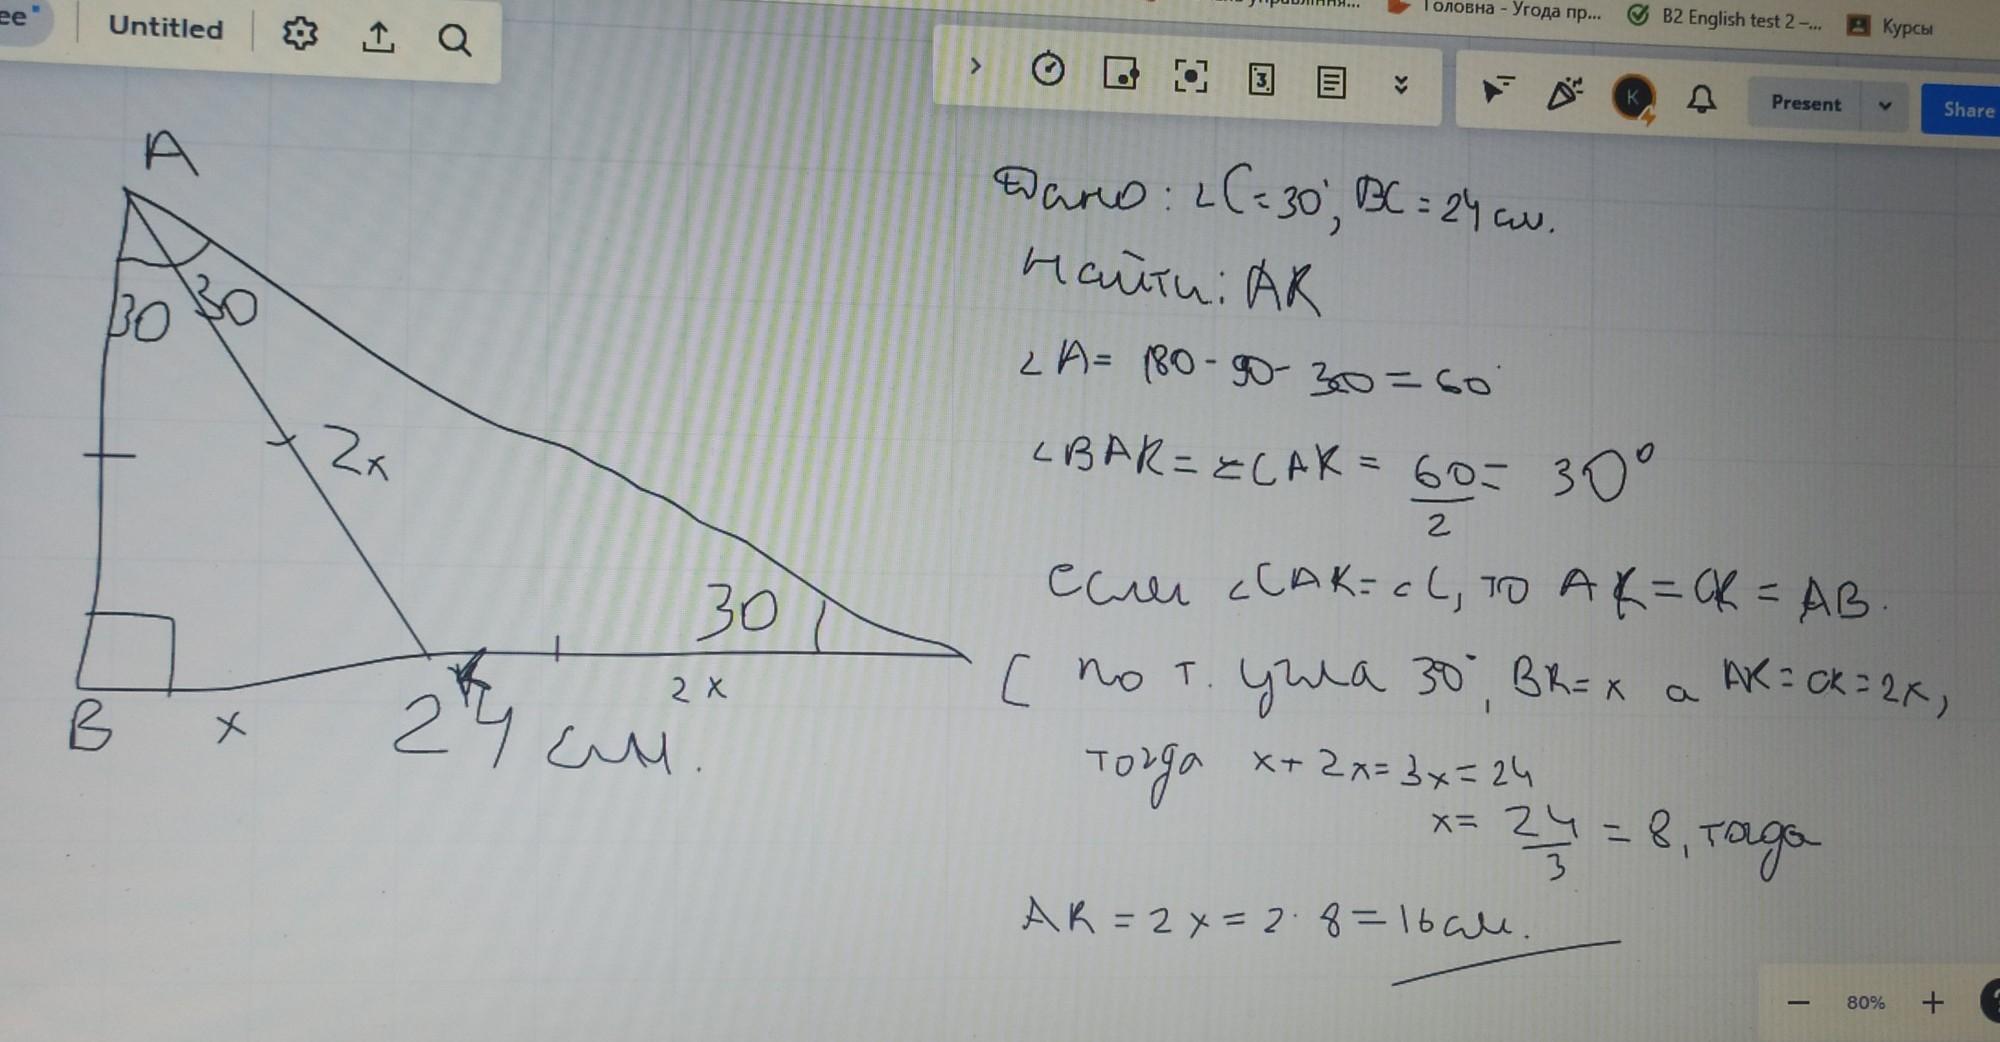 ee
Untitled
Головна - Угода пр...
B2 English test 2 –...
Курсы
3
K
Present
Share
A
30
30
2x
30
B
x
K
24 см.
2x
C
Дано: ∠C=30°, BC=24 см.
Найти: AK
∠A= 180-90-30=60°
∠BAK=∠CAK= 60/2= 30°
если ∠CAK=∠C, то AK=CK=AB.
по т. угла 30°, BK=x а AK=CK=2x,
тогда x+2x=3x=24
x= 24/3 =8, тогда
AK=2x=2·8=16см.
80%